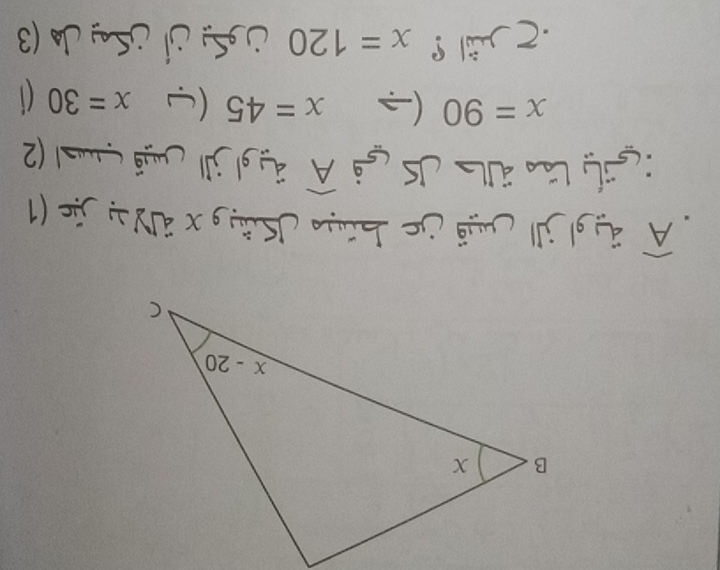 B
x
x - 20
C
1) عبّر بدلالة x وبشكل مبسّط عن قيس الزاوية Â .
2) احسب قيس الزاوية Â في كل حالة ممّا يأتي:
أ) x = 30 ب) x = 45 ج) x = 90
3) هل يمكن أن يكون x = 120 ؟ اشرح.